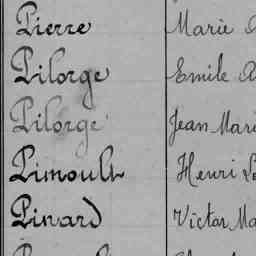 Pierre Marie
Pilorge Emile
Pilorge Jean Mari
Pimoult Henri
Pinard Victor Ma